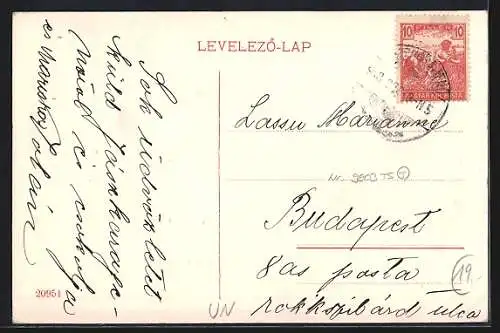 LEVELEZŐ-LAP
Sok üdvözletet
küld Jászkaraje-
nőről és csókolja
és Mariskay
20951
FILLÉR
10 10
MAGYAR POSTA
Lassu Marianne
Nr. 9603 TS T
Budapest
8as posta
rökkszilárd utca
UN
19.-